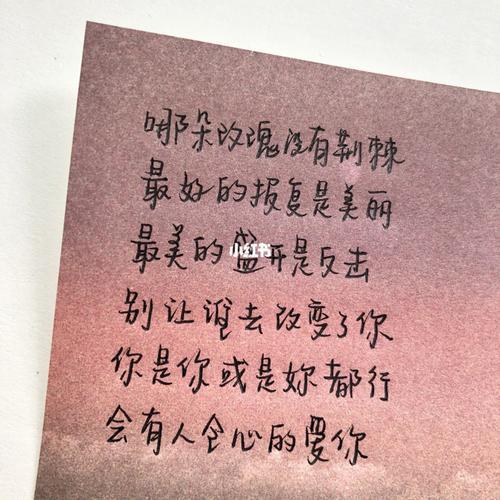 哪朵玫瑰没有荆棘
最好的报复是美丽
最美的盛开是反击
小红书
别让谁去改变了你
你是你或是妳都行
会有人全心的爱你